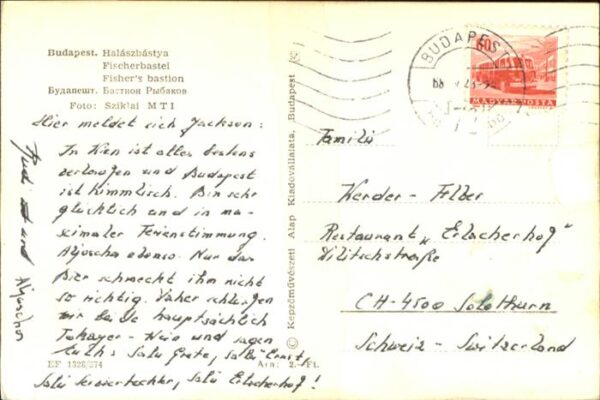 Budapest. Halászbástya
Fischerbastei
Fisher's bastion
Будапешт. Бастион Рыбаков
Foto: Sziklai MTI
Hier meldet sich Jackson:
In Wien ist alles bestens
verlaufen und Budapest
ist himmlisch. Bin sehr
glücklich und in ma-
ximaler Ferienstimmung.
Aljoscha ebenso. Nur das
Bier schmeckt ihm nicht
so richtig. Daher
wir beide hauptsächlich
Tokayer-Wein und sagen
Euch: Salü Grete, Salü Ernst,
Salü Serviertochter, Salü Erlacherhof!
und Aljoscha
EF 1328/674
Ára: 2.- Ft.
© Képzőművészeti Alap Kiadóvállalata, Budapest
BUDAPEST
60
MAGYAR POSTA
Familie
Herder-Felber
Restaurant "Erlacherhof"
Dilitschstraße
CH-4500 Solothurn
Schweiz - Switzerland